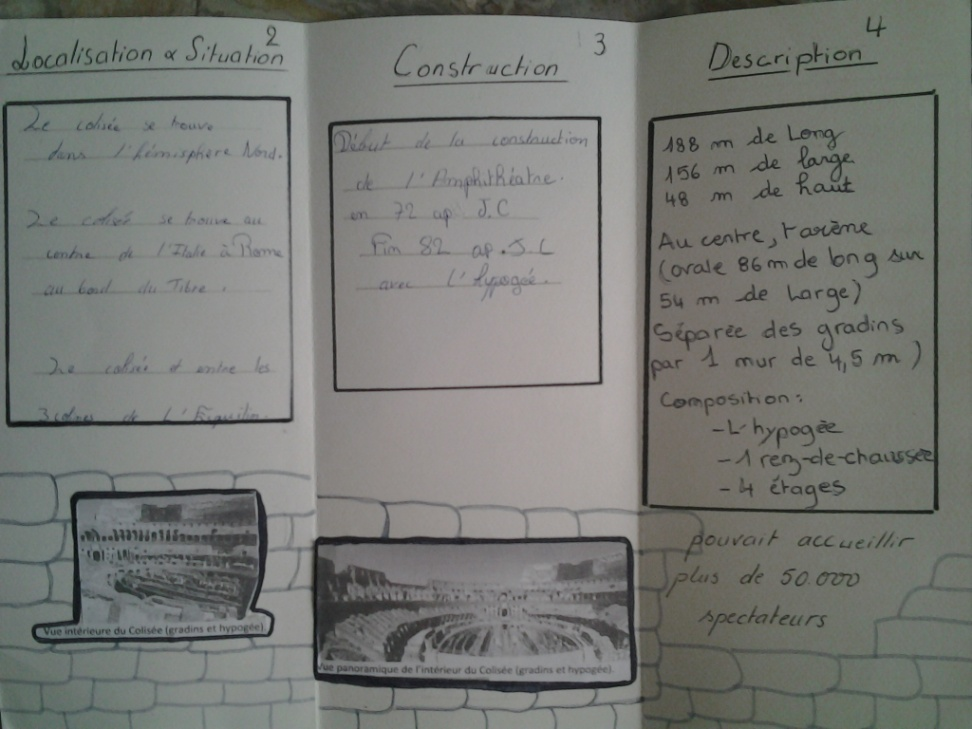 2
Localisation & Situation
Le colisée se trouve
dans l'hémisphère Nord.
Le colisée se trouve au
centre de l'Italie à Rome
au bord du Tibre.
Le colisée et entre les
3 colines de L'Esquilin.
Vue intérieure du Colisée (gradins et hypogée).
3
Construction
Début de la construction
de l'Amphithéatre.
en 72 ap J.C
Fin 82 ap.J.C
avec l'hypogée.
Vue panoramique de l'intérieur du Colisée (gradins et hypogée).
4
Description
188 m de Long
156 m de large
48 m de haut
Au centre, l'arène
(ovale 86 m de long sur
54 m de Large)
Séparée des gradins
par 1 mur de 4,5 m)
Composition:
- L'hypogée
- 1 rez-de-chaussée
- 4 étages
pouvait accueillir
plus de 50.000
spectateurs